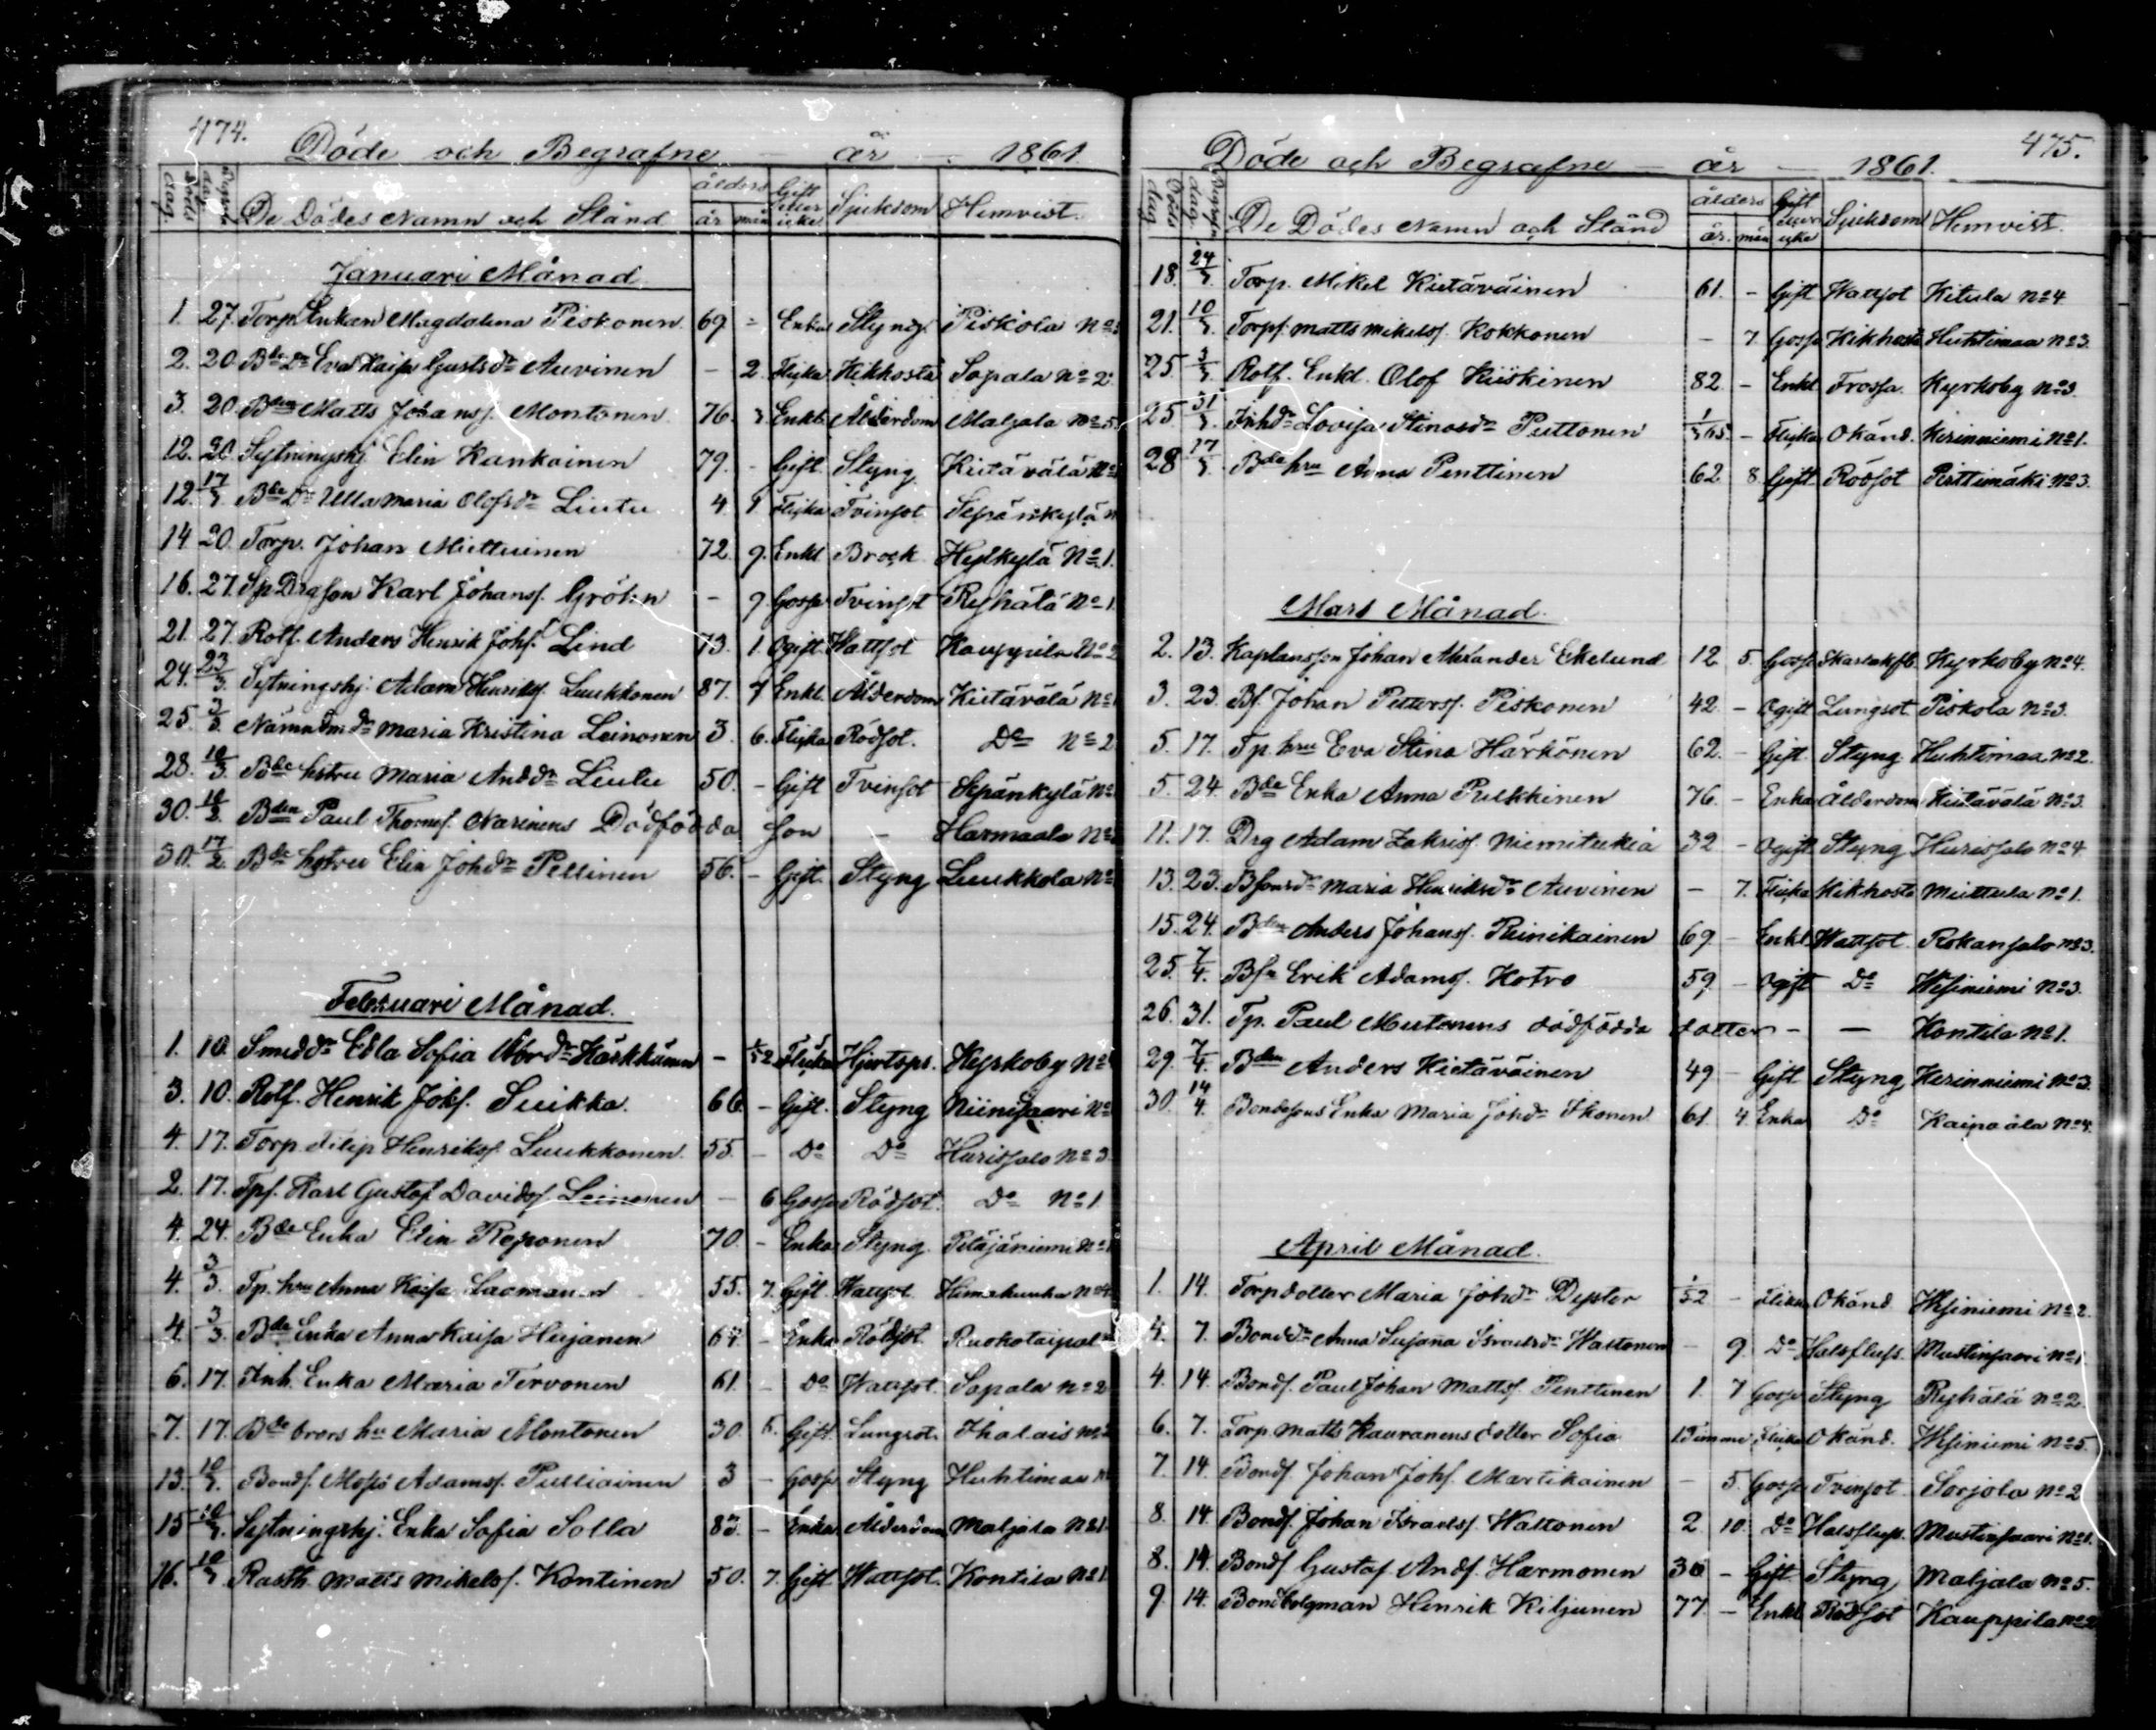 474.
Döde och Begrafne år 1861
Döds dag Begrafn. dag De Dödes Namn och Stånd ålders år mån Gift eller icke Sjukdom Hemvist.
Januari Månad
1. 27. Torp. Enkan Magdalena Piskonen 69 - Enka Styng. Piskola No
2. 20. Bde Dr Eva Kaisa Gustsdr Auvinen - 2. Flicka Kikhosta Sapala No 2.
3. 20. Bden Matts Johansf. Montonen 76. 3 Enkl. Ålderdom Maljala No 5.
12. 20. Sytningshj Elin Kankainen 79. - Gift Styng Kietävälä No
12. 17/3 Bde Dr Ulla Maria Olofsdr Liutu 4 9 Flicka Tvinsot Sepänkylä
14 20. Torp. Johan Miettuinen 72. 9. Enkl Brock Hylkylä No 1.
16. 27. Sp Drgson Karl Johansf. Gröhn - 9. Gosse Tvinsot Ryhälä No 1.
21. 27. Rotf. Anders Henrik Johf. Lind 73. 1. Ogift Wattsot Kauppila No 2
24. 23/3. Sytningshj. Adam Henriksf. Luukkonen 87. 7 Enkl. Ålderdom Kietävälä No
25. 3/3. Nämndm dr Maria Kristina Leinonen 3. 6. Flicka Rödsot. Do No 2
28. 10/3. Bde hstru Maria Anddr Liutu 50. - Gift Tvinsot Sepänkylä No
30. 10/2. Bden Paul Thomsf. Narinens Dödfödda son - Harmaala No
30. 17/2. Bde hstru Elin Johdr Pellinen 56. - Gift. Styng Luukkola No
Februari Månad.
1. 10. Smeddr Edla Sofia Abrdr Härkkänen - 1/52 Flicka Hjertspr. Kyrkoby No
3. 10. Rotf. Henrik Johf. Suikka. 66 - Gift. Styng Niinisaari No
4. 17. Torp. Filip Henriksf. Luukkonen. 55. - Do Do Hurissalo No 3.
2. 17. Tpf. Karl Gustaf Davidsf. Leinonen - 6 Gosse Rödsot. Do No 1.
4. 24. Bde Enka Elin Reponen 70. - Enka Styng. Petäjäniemi No
4. 3/3. Tp. hru Anna Kaisa Laamanen 55. 7. Gift. Wattsot. Himahuuha No 4
4. 3/3. Bde Enka Anna Kaisa Heijanen 64 - Enka Rödsot. Ruokotaipal
6. 17. Inh. Enka Maria Tervonen 61. - Do Wattsot. Sapala No 2
7. 17. Bde brors hu Maria Montonen 30. 5. Gift. Lungsot. Ihalais No
13. 10/3. Bondf. Moses Adamsf. Pulliainen 3 - Gosse Styng Huhtimaa No
15 10/3. Sytningshj. Enka Sofia Solla 83. - Enka Ålderdom Maljala No 1.
16. 10/3 Rasth. Matts Mikelsf. Kontinen 50. 7. Gift Wattsot. Kontila No 1.
475.
Döde och Begrafne år 1861.
Döds dag Begrafn. dag De Dödes Namn och Stånd ålders år. mån Gift eller icke Sjukdom Hemvist.
18. 24/3. Torp. Mikel Kietäväinen 61. - Gift Wattsot Kitula No 4
21. 10/3. Torpf. Matts Mikelsf. Kokkonen - 7 Gosse Kikhosta Huhtimaa No 3.
25. 3/3. Rotf. Enkl. Olof Kiiskinen 82. - Enkl Frossa. Kyrkoby No 3.
25. 31/3. Inhdr Lovisa Stinasdr Puttonen 1/365. - Flicka Okänd. Kerinniemi No 1.
28 17/3. Bde hru Anna Penttinen 62. 8. Gift Rödsot Pirttimäki No 3.
Mars Månad.
2. 13. Kaplansson Johan Alexander Ekelund 12. 5. Gosse Skarlakfb. Kyrkoby No 4.
3. 23. Bf. Johan Pettersf. Piskonen 42 - Ogift Lungsot Piskola No 3.
5. 17. Tp hru Eva Stina Härkönen 62. - Gift. Styng Huhtimaa No 2.
5. 24. Bde Enka Anna Pulkkinen 76. - Enka Ålderdom Kietävälä No 3.
11. 17. Drg Adam Zakrisf. Niemitukia 32 - Ogift. Styng Hurissalo No 4.
13. 23. Bfonsdr Maria Henriksdr Auvinen - 7. Flicka Kikhosta Miettula No 1.
15. 24. Bden Anders Johansf. Reinikainen 69 - Enkl Wattsot. Rokansalo No 3.
25. 7/4. Bfn Erik Adamsf. Kotro 59. - Ogift Do Wesiniemi No 3.
26. 31. Tp. Paul Mustonens dödfödda dotter - — Kontila No 1.
29. 7/4. Bden Anders Kietäväinen 49 - Gift Styng Kerinniemi No 3.
30. 14/4. Bondesons Enka Maria Johdr Ikonen 61. 4. Enka Do Kaipaala No 4.
April Månad.
1. 14. Torpdotter Maria Johdr Depter 1/52 - Flicka Okänd Wesiniemi No 2.
4. 7. Bonddr Anna Susana Israelsdr Wattonen - 9. Do Halsflufs. Mustinsaari No 1.
4. 14. Bondf. Paul Johan Mattsf. Penttinen 1. 7 Gosse Styng Ryhälä No 2.
6. 7. Torp Matts Kauranens dotter Sofia 1 Timme Flicka Okänd. Wesiniemi No 5.
7. 14. Bondf. Johan Johf. Martikainen - 5. Gosse Tvinsot. Sorjola No 2
8. 14. Bondf. Johan Israelsf. Wattonen 2. 10. Do Halsflufs. Mustinsaari No 1.
8. 14. Bondf Gustaf Andf. Harmonen 36 - Gift Styng Maljala No 5.
9. 14. Bondbolgman Henrik Kiljunen 77. - Enkl Rödsot Kauppila No 2